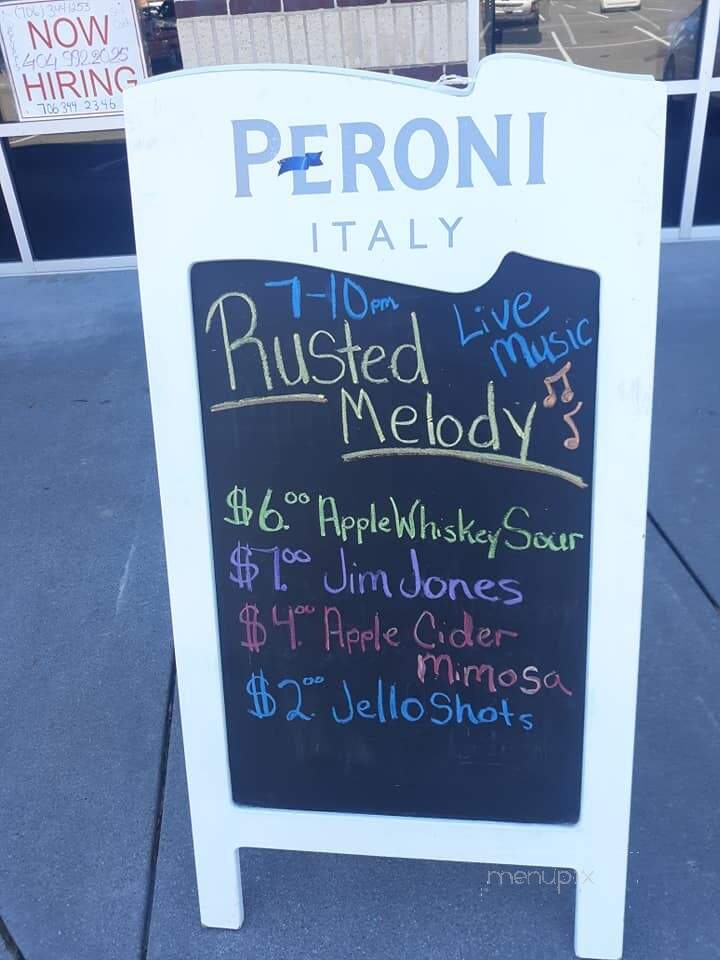 (706) 344 1253
NOW
404 992 2025
HIRING
706 344 2346
PERONI
ITALY
7-10 pm
Live
Music
Rusted
Melody
$6.00 Apple Whiskey Sour
$7.00 Jim Jones
$4.00 Apple Cider
Mimosa
$2.00 Jello Shots
menupix